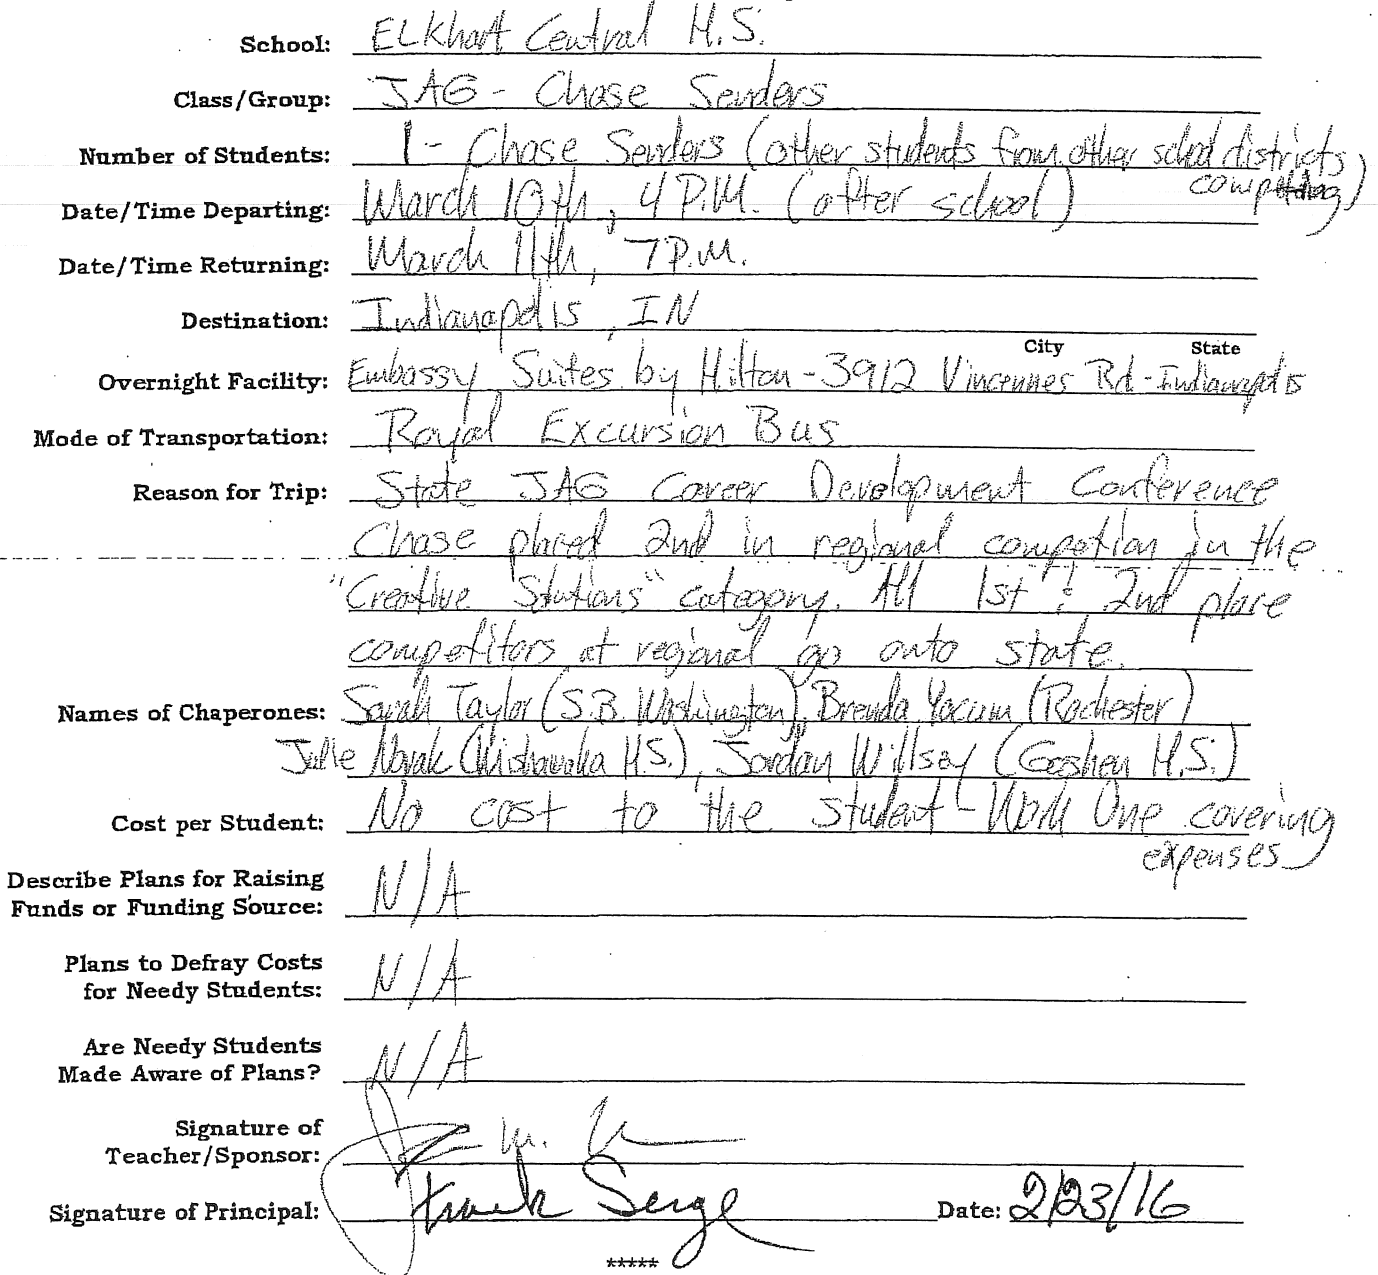 School: Elkhart Central H.S.
Class/Group: JAG - Chase Senders
Number of Students: 1 - Chase Senders (other students from other school districts
competing)
Date/Time Departing: March 10th, 4 P.M. (after school)
Date/Time Returning: March 11th, 7 P.M.
Destination: Indianapolis, IN
City State
Overnight Facility: Embassy Suites by Hilton - 3912 Vincennes Rd - Indianapolis
Mode of Transportation: Royal Excursion Bus
Reason for Trip: State JAG Career Development Conference
Chase placed 2nd in regional competion in the
"Creative Solutions" category. All 1st & 2nd place
competitors at regional go onto state.
Names of Chaperones: Sarah Taylor (S.B. Washington), Brenda Yocum (Rochester)
Julie Novak (Mishawaka H.S.), Jordan Willsey (Goshen H.S.)
Cost per Student: No cost to the student - Work One covering
expenses
Describe Plans for Raising
Funds or Funding Source: N/A
Plans to Defray Costs
for Needy Students: N/A
Are Needy Students
Made Aware of Plans? N/A
Signature of
Teacher/Sponsor:
Signature of Principal: Frank Serge Date: 2/23/16
*****